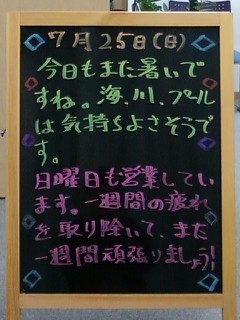 7月25日(日)
今日もまた暑いで
すね。海、川、プール
は気持ちよさそうで
す。
日曜日も営業してい
ます。一週間の疲れ
を取り除いて、また
一週間頑張りましょう!